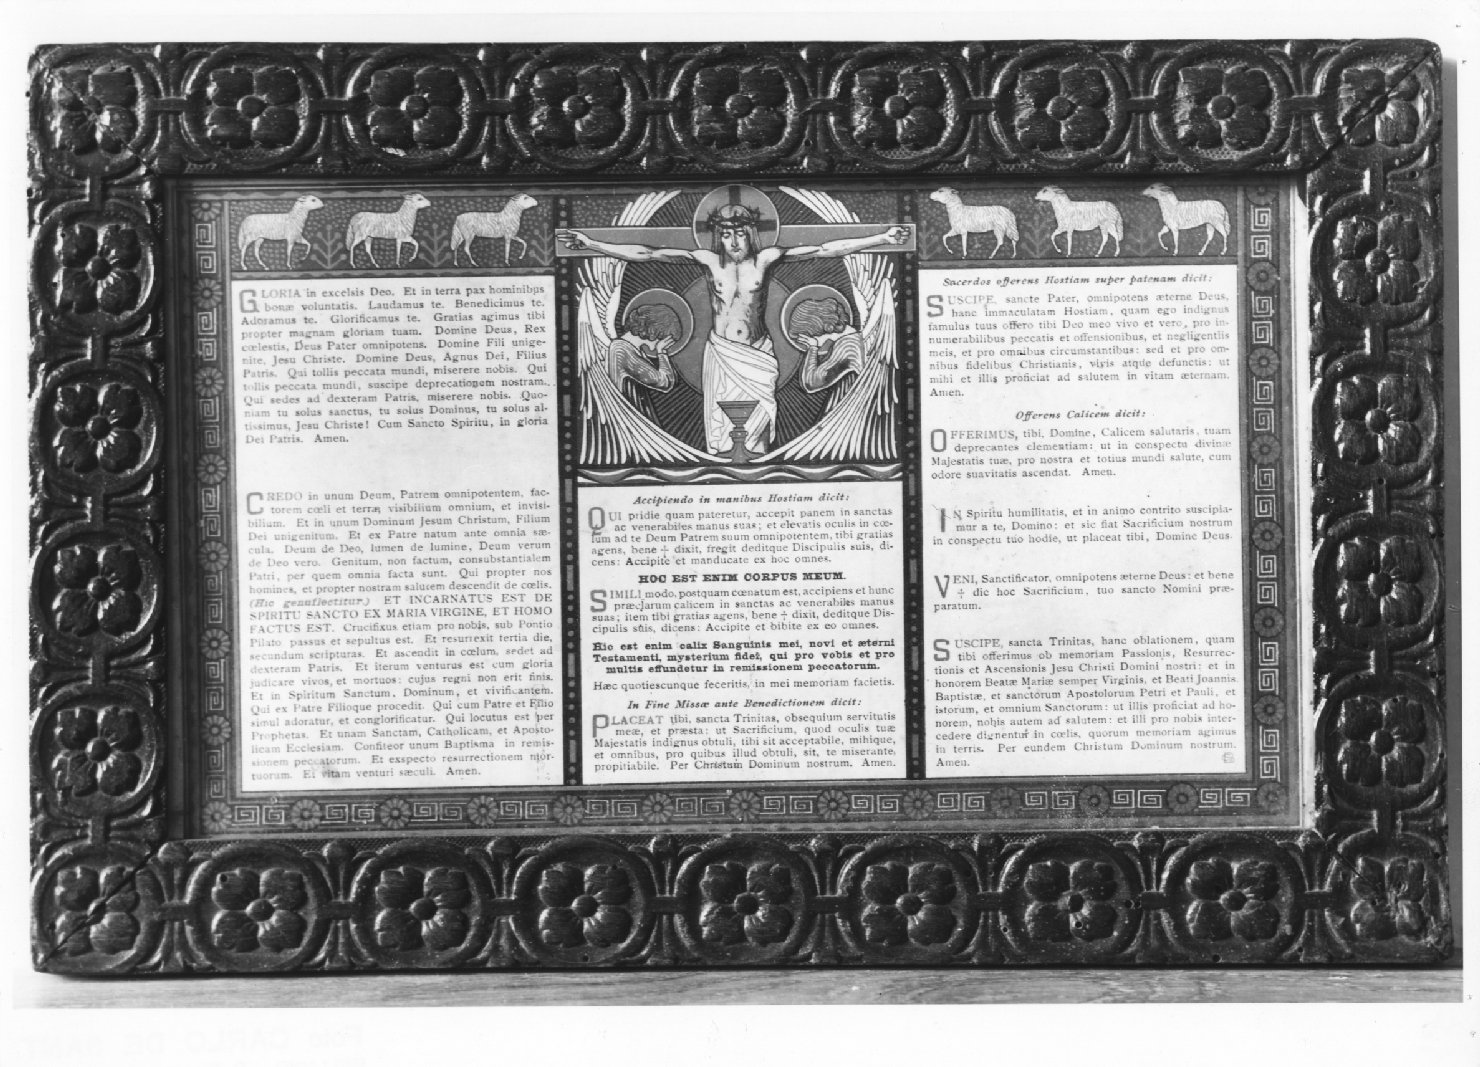 GLORIA in excelsis Deo. Et in terra pax hominibus
bonæ voluntatis. Laudamus te. Benedicimus te.
Adoramus te. Glorificamus te. Gratias agimus tibi
propter magnam gloriam tuam. Domine Deus, Rex
cœlestis, Deus Pater omnipotens. Domine Fili unige-
nite, Jesu Christe. Domine Deus, Agnus Dei, Filius
Patris. Qui tollis peccata mundi, miserere nobis. Qui
tollis peccata mundi, suscipe deprecationem nostram.
Qui sedes ad dexteram Patris, miserere nobis. Quo-
niam tu solus sanctus, tu solus Dominus, tu solus al-
tissimus, Jesu Christe! Cum Sancto Spiritu, in gloria
Dei Patris. Amen.
CREDO in unum Deum, Patrem omnipotentem, fac-
torem cœli et terræ visibilium omnium, et invisi-
bilium. Et in unum Dominum Jesum Christum, Filium
Dei unigenitum. Et ex Patre natum ante omnia sæ-
cula. Deum de Deo, lumen de lumine, Deum verum
de Deo vero. Genitum, non factum, consubstantialem
Patri, per quem omnia facta sunt. Qui propter nos
homines, et propter nostram salutem descendit de cœlis.
(Hic genuflectitur.) ET INCARNATUS EST DE
SPIRITU SANCTO EX MARIA VIRGINE, ET HOMO
FACTUS EST. Crucifixus etiam pro nobis, sub Pontio
Pilato passus et sepultus est. Et resurrexit tertia die,
secundum scripturas. Et ascendit in cœlum, sedet ad
dexteram Patris. Et iterum venturus est cum gloria
judicare vivos, et mortuos: cujus regni non erit finis.
Et in Spiritum Sanctum, Dominum, et vivificantem.
Qui ex Patre Filioque procedit. Qui cum Patre et Filio
simul adoratur, et conglorificatur. Qui locutus est per
Prophetas. Et unam Sanctam, Catholicam, et Aposto-
licam Ecclesiam. Confiteor unum Baptisma in remis-
sionem peccatorum. Et exspecto resurrectionem mor-
tuorum. Et vitam venturi sæculi. Amen.
Accipiendo in manibus Hostiam dicit:
QUI pridie quam pateretur, accepit panem in sanctas
ac venerabiles manus suas; et elevatis oculis in cœ-
lum ad te Deum Patrem suum omnipotentem, tibi gratias
agens, bene ☩ dixit, fregit deditque Discipulis suis, di-
cens: Accipite et manducate ex hoc omnes.
HOC EST ENIM CORPUS MEUM.
SIMILI modo, postquam cœnatum est, accipiens et hunc
præclarum calicem in sanctas ac venerabiles manus
suas; item tibi gratias agens, bene ☩ dixit, deditque Dis-
cipulis suis, dicens: Accipite et bibite ex eo omnes.
Hic est enim calix Sanguinis mei, novi et æterni
Testamenti, mysterium fidei, qui pro vobis et pro
multis effundetur in remissionem peccatorum.
Hæc quotiescunque feceritis, in mei memoriam facietis.
In Fine Missæ ante Benedictionem dicit:
PLACEAT tibi, sancta Trinitas, obsequium servitutis
meæ, et præsta: ut Sacrificium, quod oculis tuæ
Majestatis indignus obtuli, tibi sit acceptabile, mihique,
et omnibus, pro quibus illud obtuli, sit, te miserante,
propitiabile. Per Christum Dominum nostrum. Amen.
Sacerdos offerens Hostiam super patenam dicit:
SUSCIPE, sancte Pater, omnipotens æterne Deus,
hanc immaculatam Hostiam, quam ego indignus
famulus tuus offero tibi Deo meo vivo et vero, pro in-
numerabilibus peccatis et offensionibus, et negligentiis
meis, et pro omnibus circumstantibus: sed et pro om-
nibus fidelibus Christianis, vivis atque defunctis: ut
mihi et illis proficiat ad salutem in vitam æternam.
Amen.
Offerens Calicem dicit:
OFFERIMUS, tibi, Domine, Calicem salutaris, tuam
deprecantes clementiam: ut in conspectu divinæ
Majestatis tuæ, pro nostra et totius mundi salute, cum
odore suavitatis ascendat. Amen.
IN Spiritu humilitatis, et in animo contrito suscipia-
mur a te, Domino: et sic fiat Sacrificium nostrum
in conspectu tuo hodie, ut placeat tibi, Domine Deus.
VENI, Sanctificator, omnipotens æterne Deus: et bene
☩ dic hoc Sacrificium, tuo sancto Nomini præ-
paratum.
SUSCIPE, sancta Trinitas, hanc oblationem, quam
tibi offerimus ob memoriam Passionis, Resurrec-
tionis et Ascensionis Jesu Christi Domini nostri: et in
honorem Beatæ Mariæ semper Virginis, et Beati Joannis
Baptistæ, et sanctorum Apostolorum Petri et Pauli, et
istorum, et omnium Sanctorum: ut illis proficiat ad ho-
norem, nobis autem ad salutem: et illi pro nobis inter-
cedere dignentur in cœlis, quorum memoriam agimus
in terris. Per eundem Christum Dominum nostrum.
Amen.